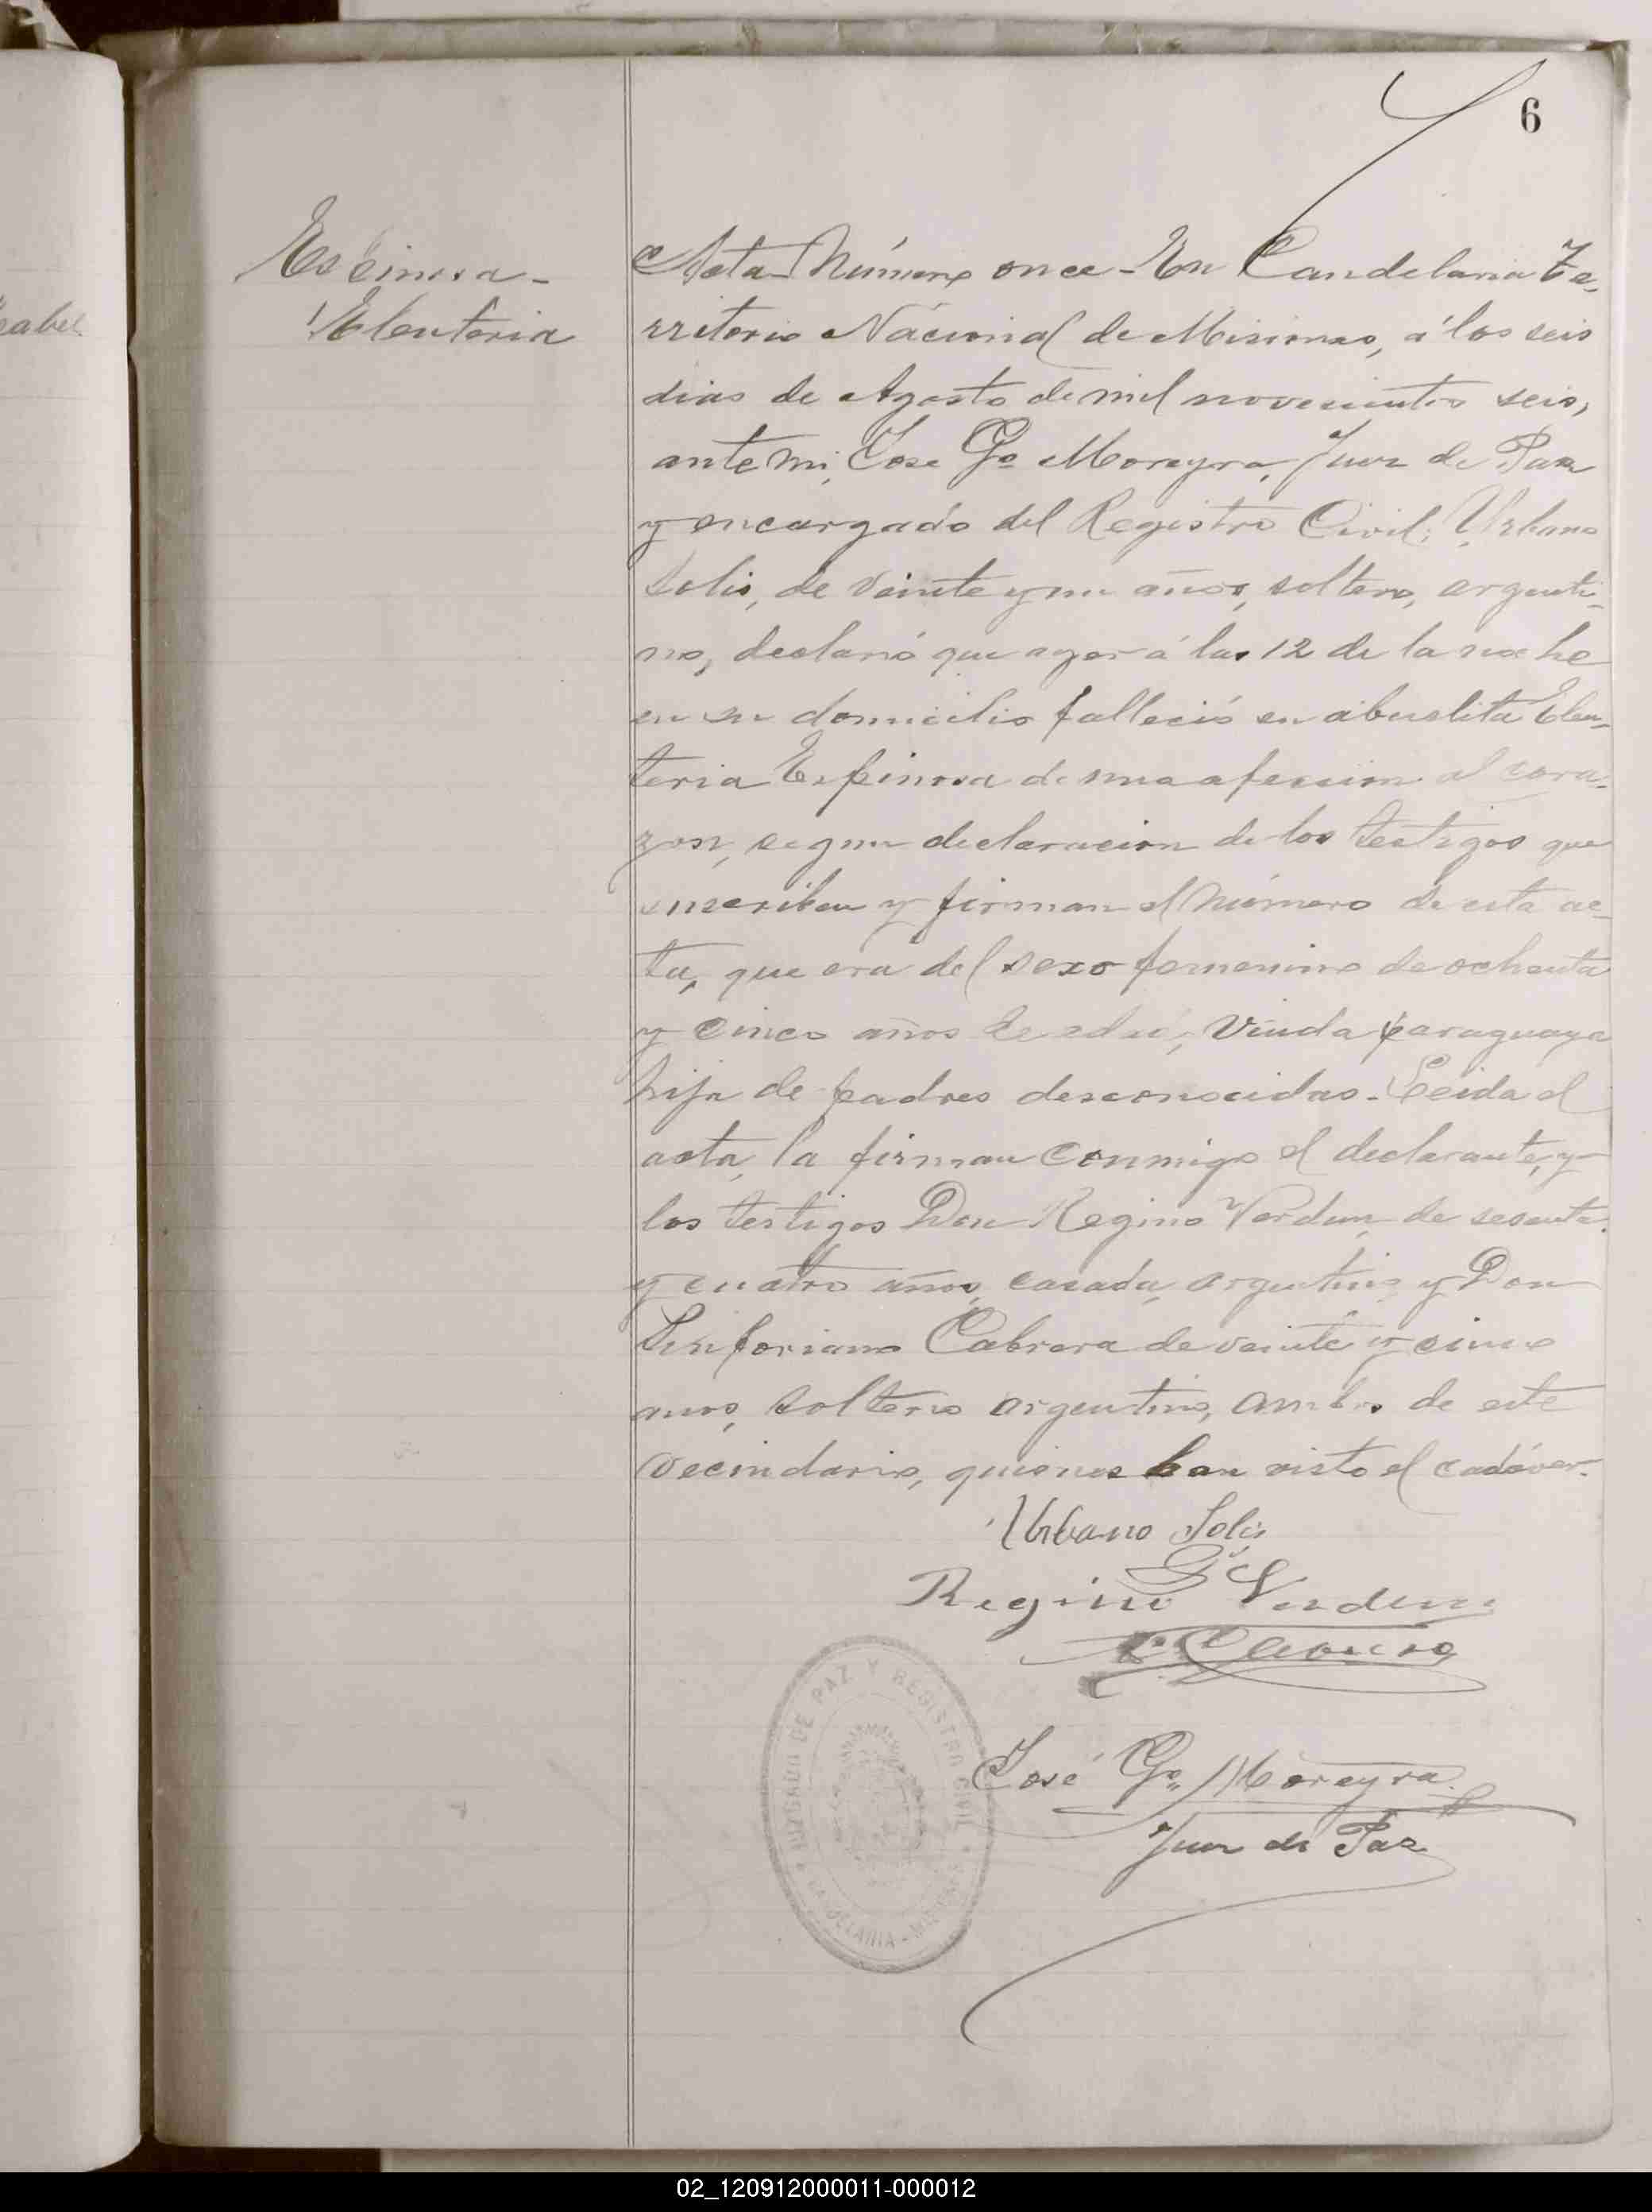 6
Espinosa -
Eleuteria
sabel
Acta Número once - En Candelaria Te-
rritorio Nacional de Misiones, á los seis
dias de Agosto de mil novecientos seis,
ante mi, Jose Go Moreyra, Juez de Paz
y encargado del Registro Civil; Urbano
Solis, de veinte y un años, soltero, argenti-
no, declaró que ayer á las 12 de la noche
en su domicilio falleció su abuelita Eleu-
teria Espinosa de una afeccion al cora-
zon, segun declaracion de los testigos que
suscriben y firman el número de esta ac-
ta, que era del sexo femenino de ochenta
y cinco años de edad, viuda paraguaya
hija de padres desconocidos. Leida el
acta, la firman conmigo el declarante, y
los testigos Don Regino Verdun, de sesenta
y cuatro años, casado, argentino y Don
Sinforiano Cabrera de veinte y cinco
anos, soltero argentino, ambos de este
vecindario, quienes han visto el cadáver.
Urbano Solis
Regino Verdun
José Go Moreyra
Juez de Paz
JUZGADO DE PAZ Y REGISTRO CIVIL
CANDELARIA - MISIONES
02_120912000011-000012